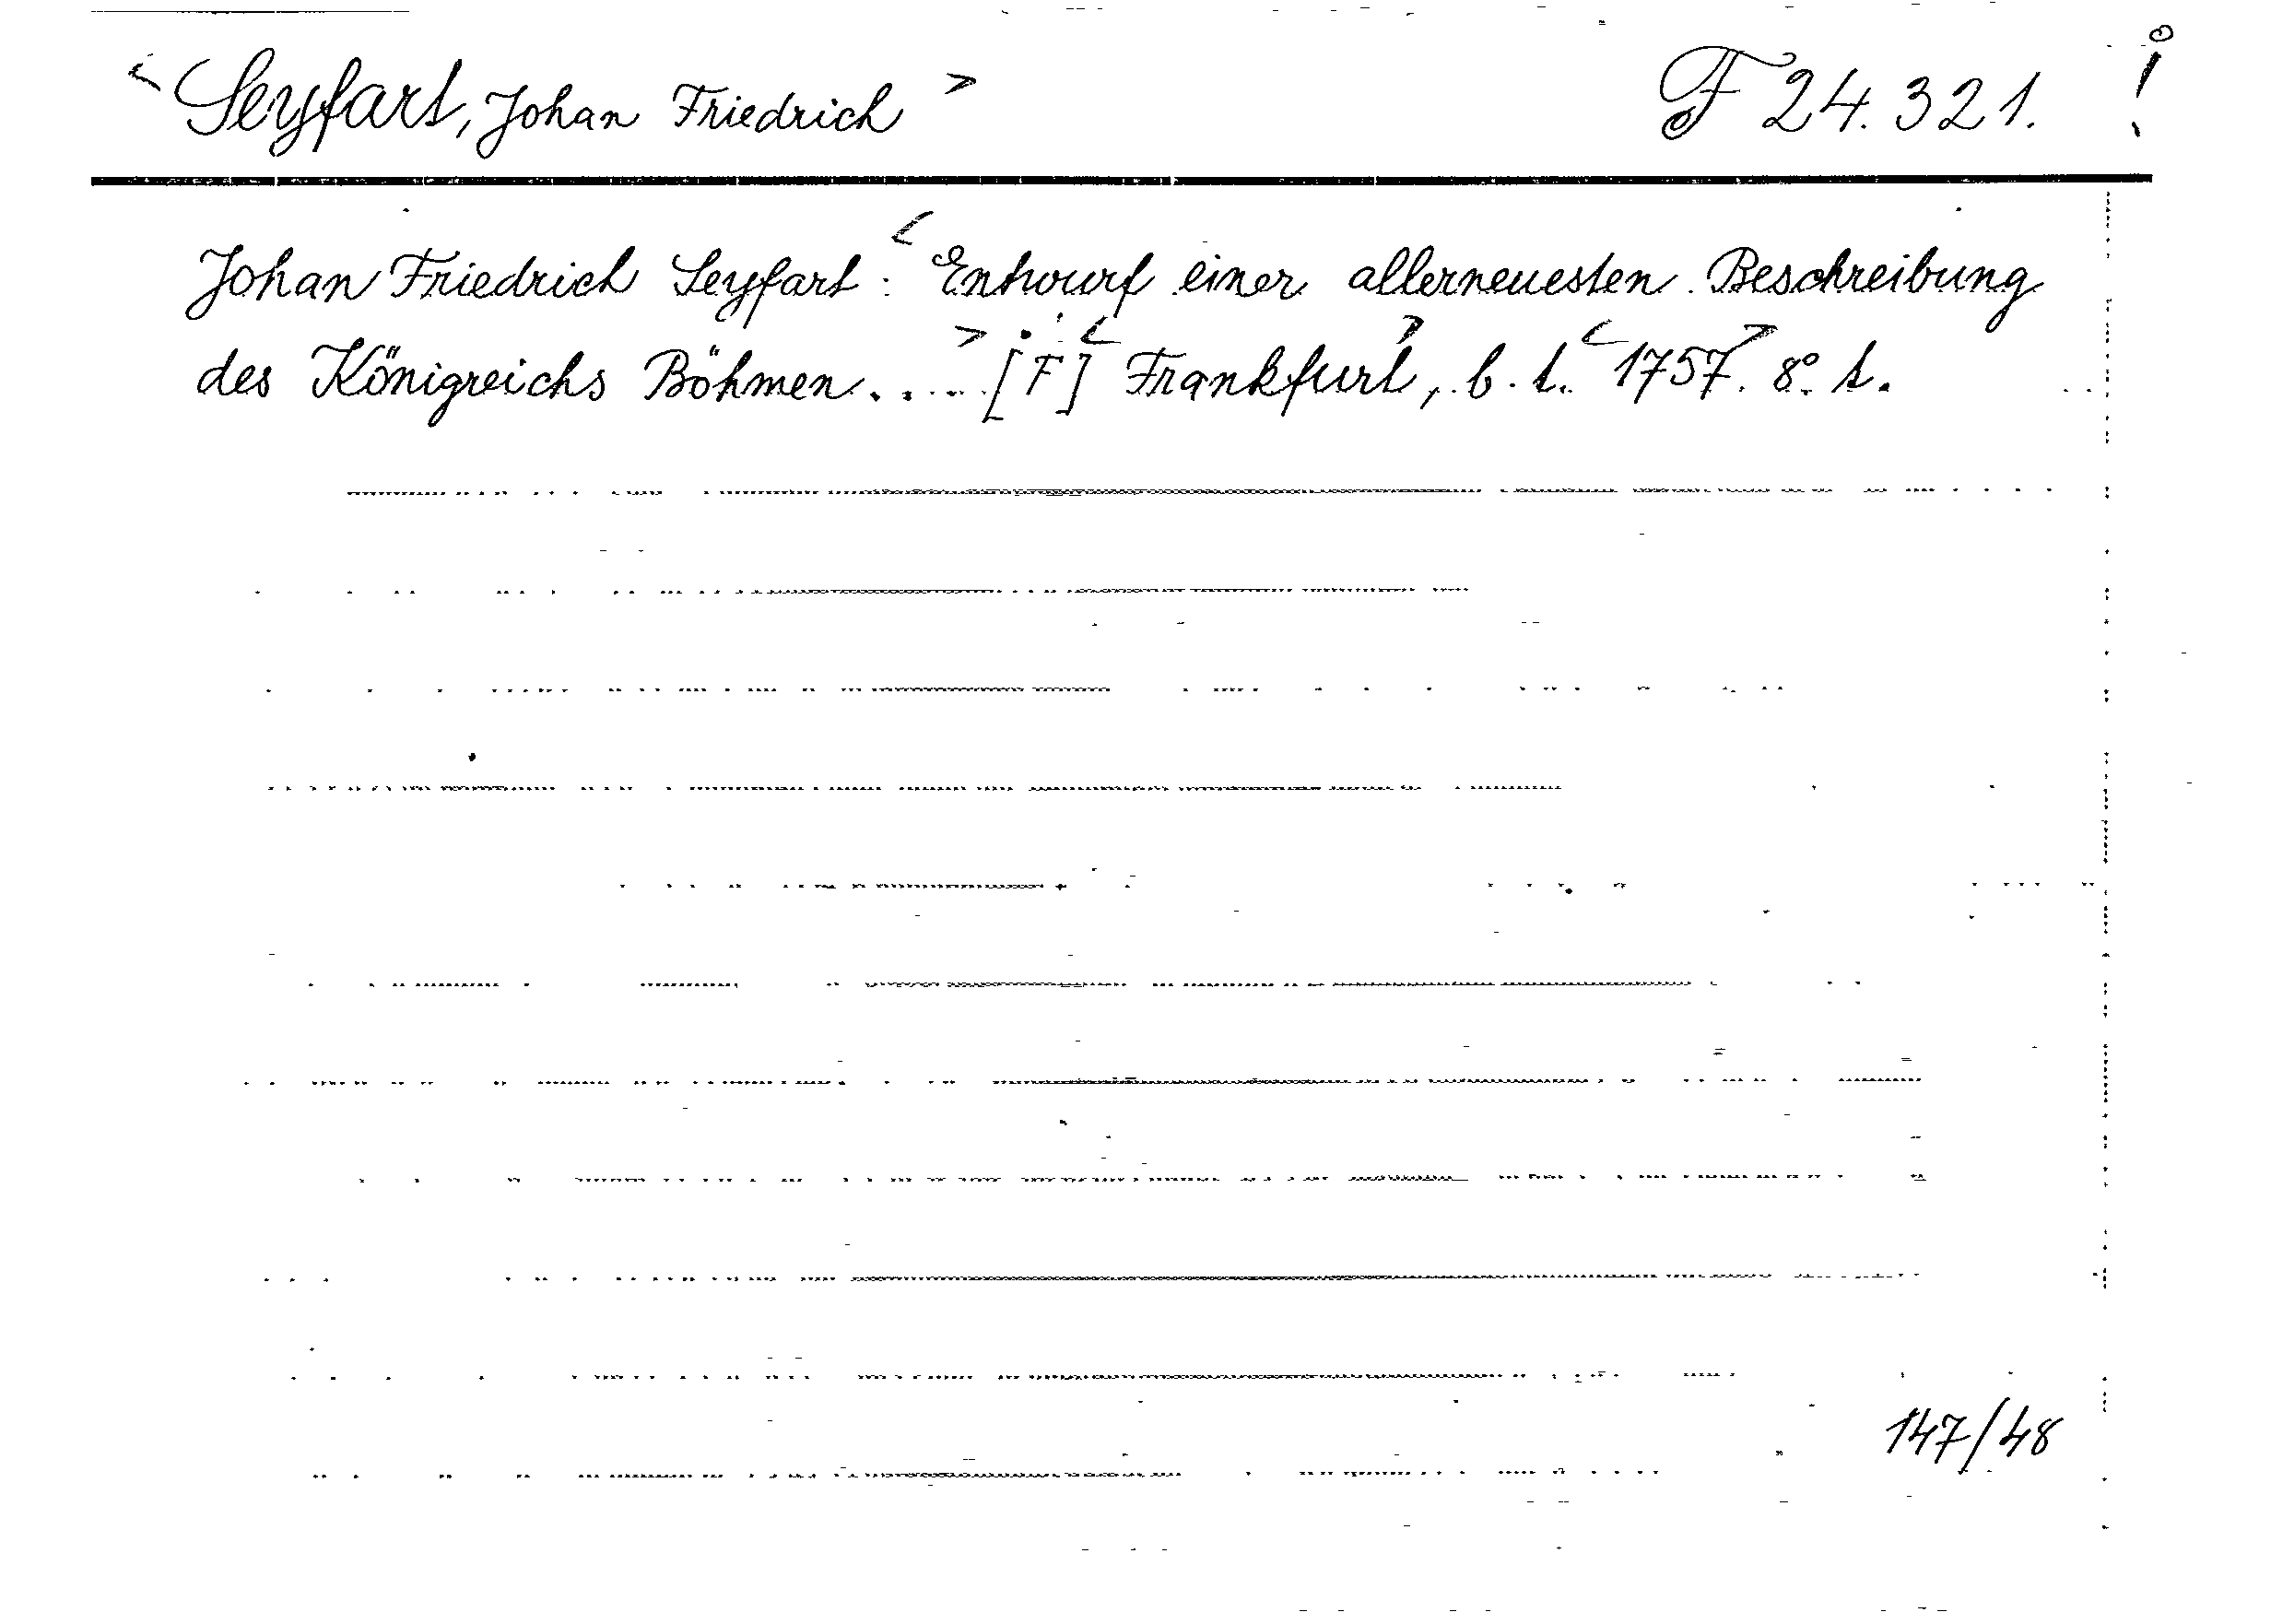 <Seyfart, Johan Friedrich> F 24.321. !
Johan Friedrich Seyfart: <Entwurf einer allerneuesten Beschreibung
des Königreichs Böhmen.....> [F] <Frankfurt>, b. t. <1757>. 8°. t.
147/48